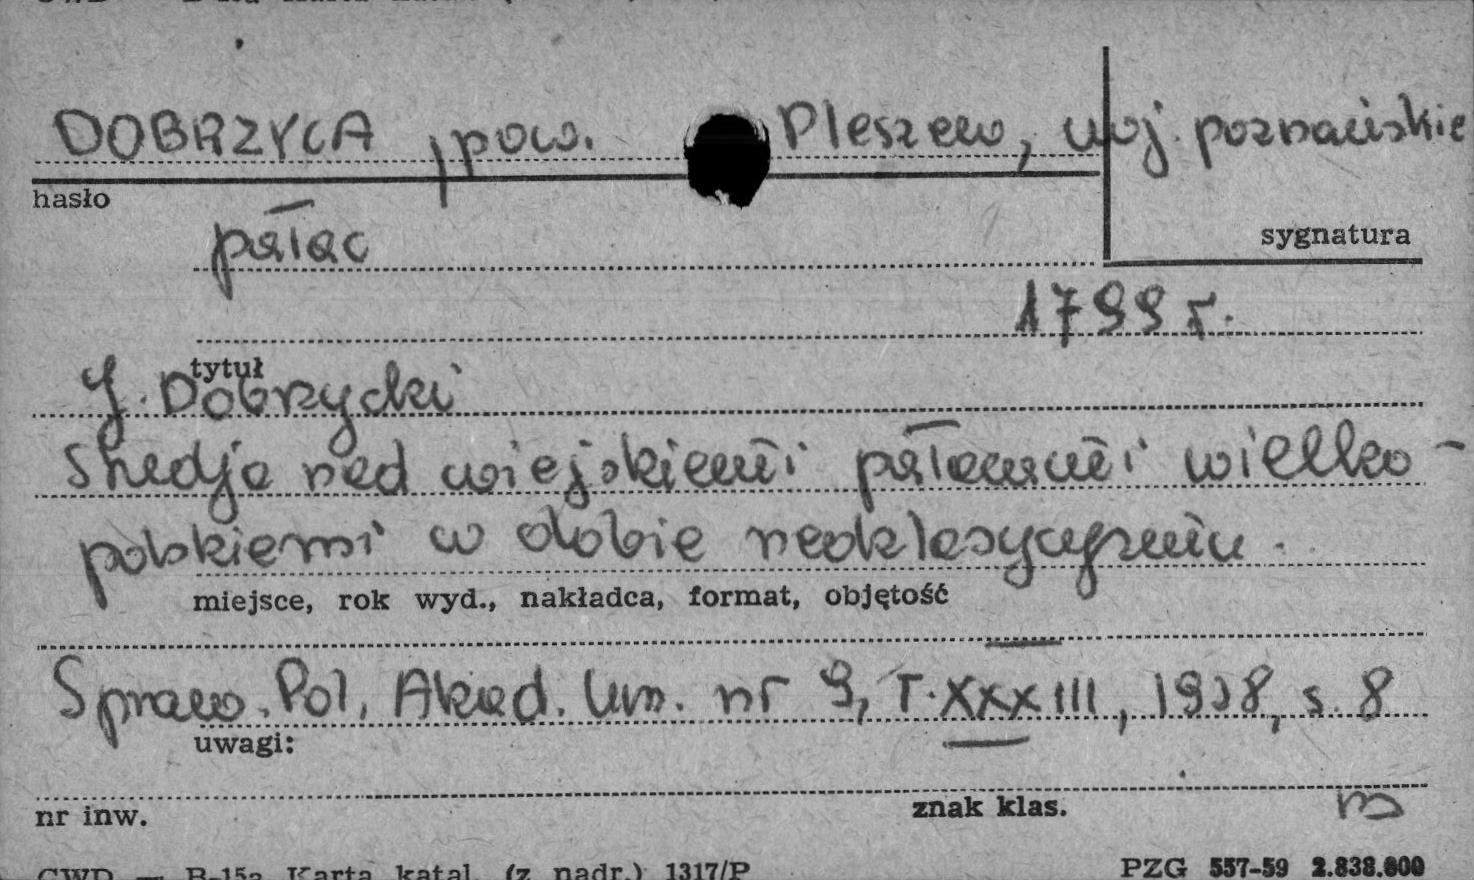 DOBRZYCA, pow. Pleszew, woj. poznańskie
hasło
sygnatura
pałac
1799 r.
tytuł
J. Dobrzycki
Studja nad wiejskiemi pałacami wielko-
polskiemi w dobie neoklasycyzmu.
miejsce, rok wyd., nakładca, format, objętość
Spraw. Pol. Akad. Um. nr 9, T. XXXIII, 1928, s. 8
uwagi:
nr inw.
znak klas.
CWD — B-15a Karta katal. (z nadr.) 1317/P
PZG 557-59 2.838.800